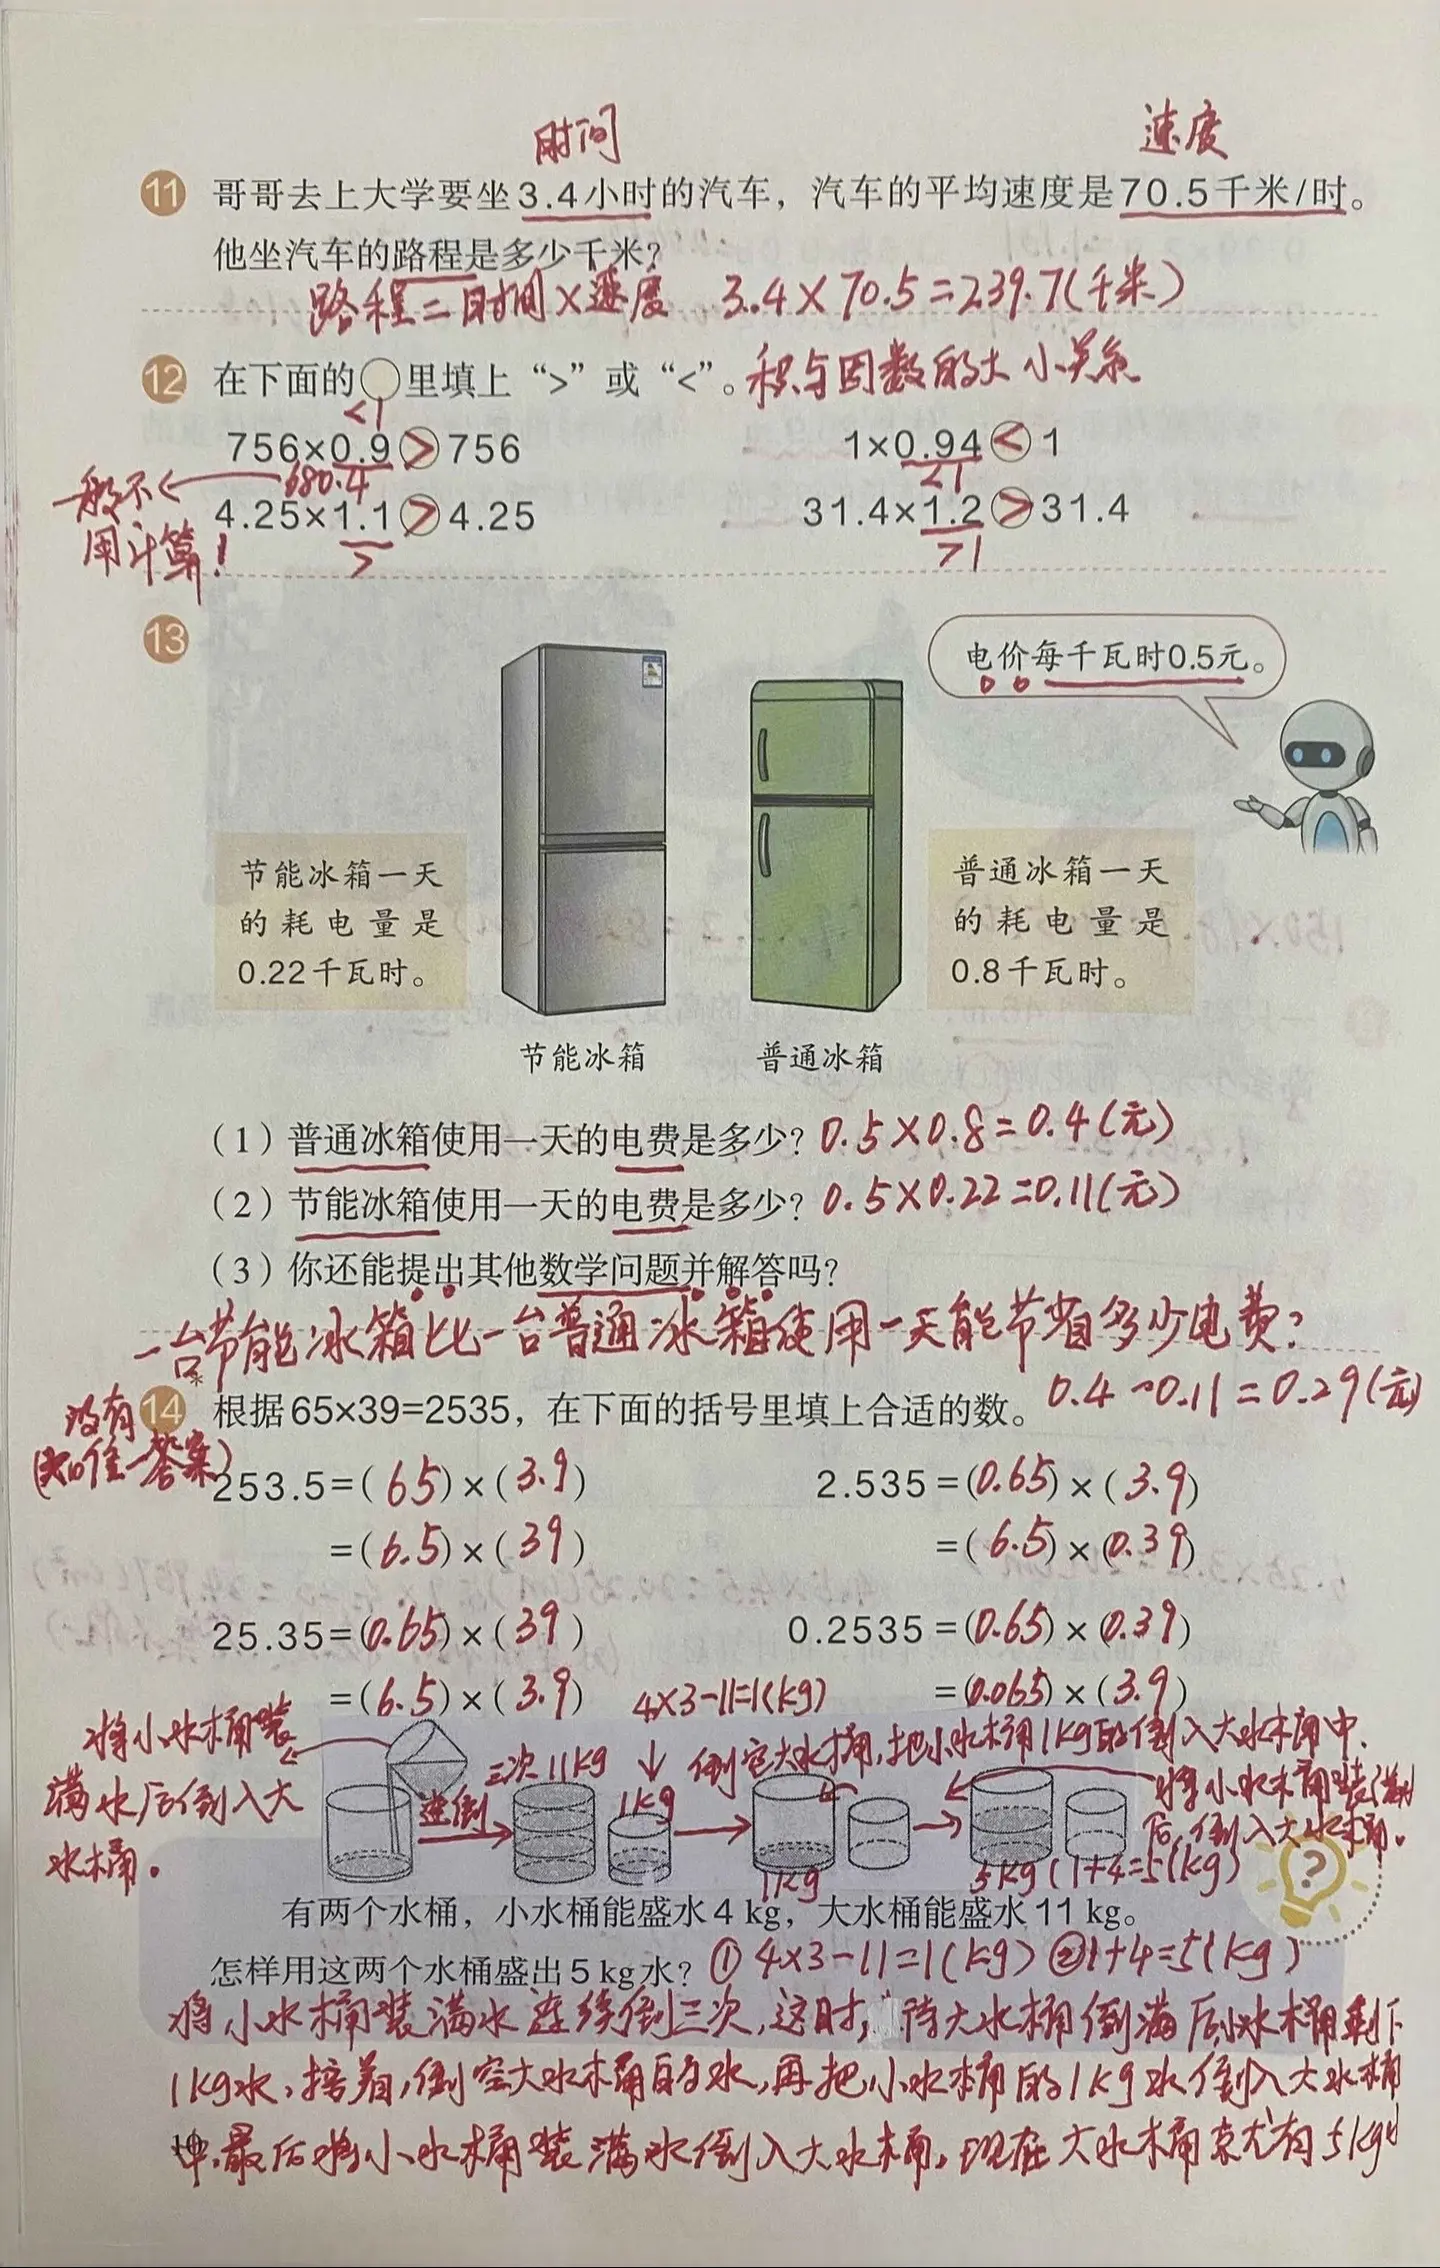 时间 速度
11 哥哥去上大学要坐3.4小时的汽车，汽车的平均速度是70.5千米/时。
他坐汽车的路程是多少千米？
路程=时间×速度 3.4×70.5=239.7(千米)
12 在下面的○里填上“>”或“<”。积与因数的大小关系
<1
756×0.9>756 1×0.94<1
680.4 <1
一般不用计算！
4.25×1.1>4.25 31.4×1.2>31.4
> >1
13
电价每千瓦时0.5元。
节能冰箱一天
的耗电量是
0.22千瓦时。
普通冰箱一天
的耗电量是
0.8千瓦时。
节能冰箱 普通冰箱
（1）普通冰箱使用一天的电费是多少？0.5×0.8=0.4(元)
（2）节能冰箱使用一天的电费是多少？0.5×0.22=0.11(元)
（3）你还能提出其他数学问题并解答吗？
一台节能冰箱比一台普通冰箱使用一天能节省多少电费？
0.4-0.11=0.29(元)
没有
唯一答案)
14* 根据65×39=2535，在下面的括号里填上合适的数。
253.5=(65)×(3.9) 2.535=(0.65)×(3.9)
=(6.5)×(39) =(6.5)×(0.39)
25.35=(0.65)×(39) 0.2535=(0.65)×(0.39)
=(6.5)×(3.9) =(0.065)×(3.9)
将小水桶装
满水后倒入大
水桶。
连倒
三次 11kg
4×3-11=1(kg)
1kg
倒空大水桶,把小水桶1kg的倒入大水桶中.
1kg
将小水桶装满水
后,倒入大水桶。
5kg(1+4=5(kg)
?
有两个水桶，小水桶能盛水4 kg，大水桶能盛水11 kg。
怎样用这两个水桶盛出5 kg水？①4×3-11=1(kg) ②1+4=5(kg)
将小水桶装满水连续倒三次,这时,待大水桶倒满后小水桶剩下
1kg水,接着,倒空大水桶的水,再把小水桶的1kg水倒入大水桶
中,最后将小水桶装满水倒入大水桶,现在大水桶就有5kg水